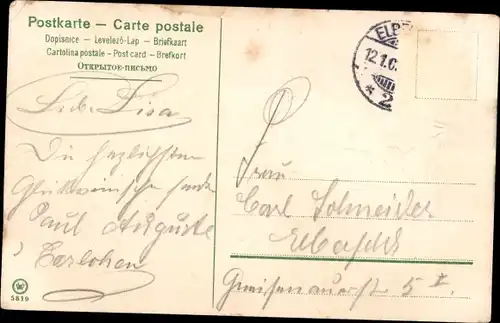 Postkarte — Carte postale
Dopisnice — Levelező-Lap — Briefkaart
Cartolina postale - Post card — Brefkort
Открытое-письмо
Lieb. Lisa
Die herzlichsten
Glückwünsche sendet
Paul Auguste
5819
ELB
12.1.0
* 2
Frau
Carl Schneider
Elberfeld
Gneisenauerstr. 5 I